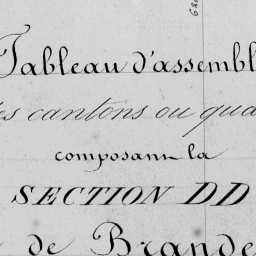 Tableau d'assembl
es cantons ou qua
composant la
SECTION DD
de Brande